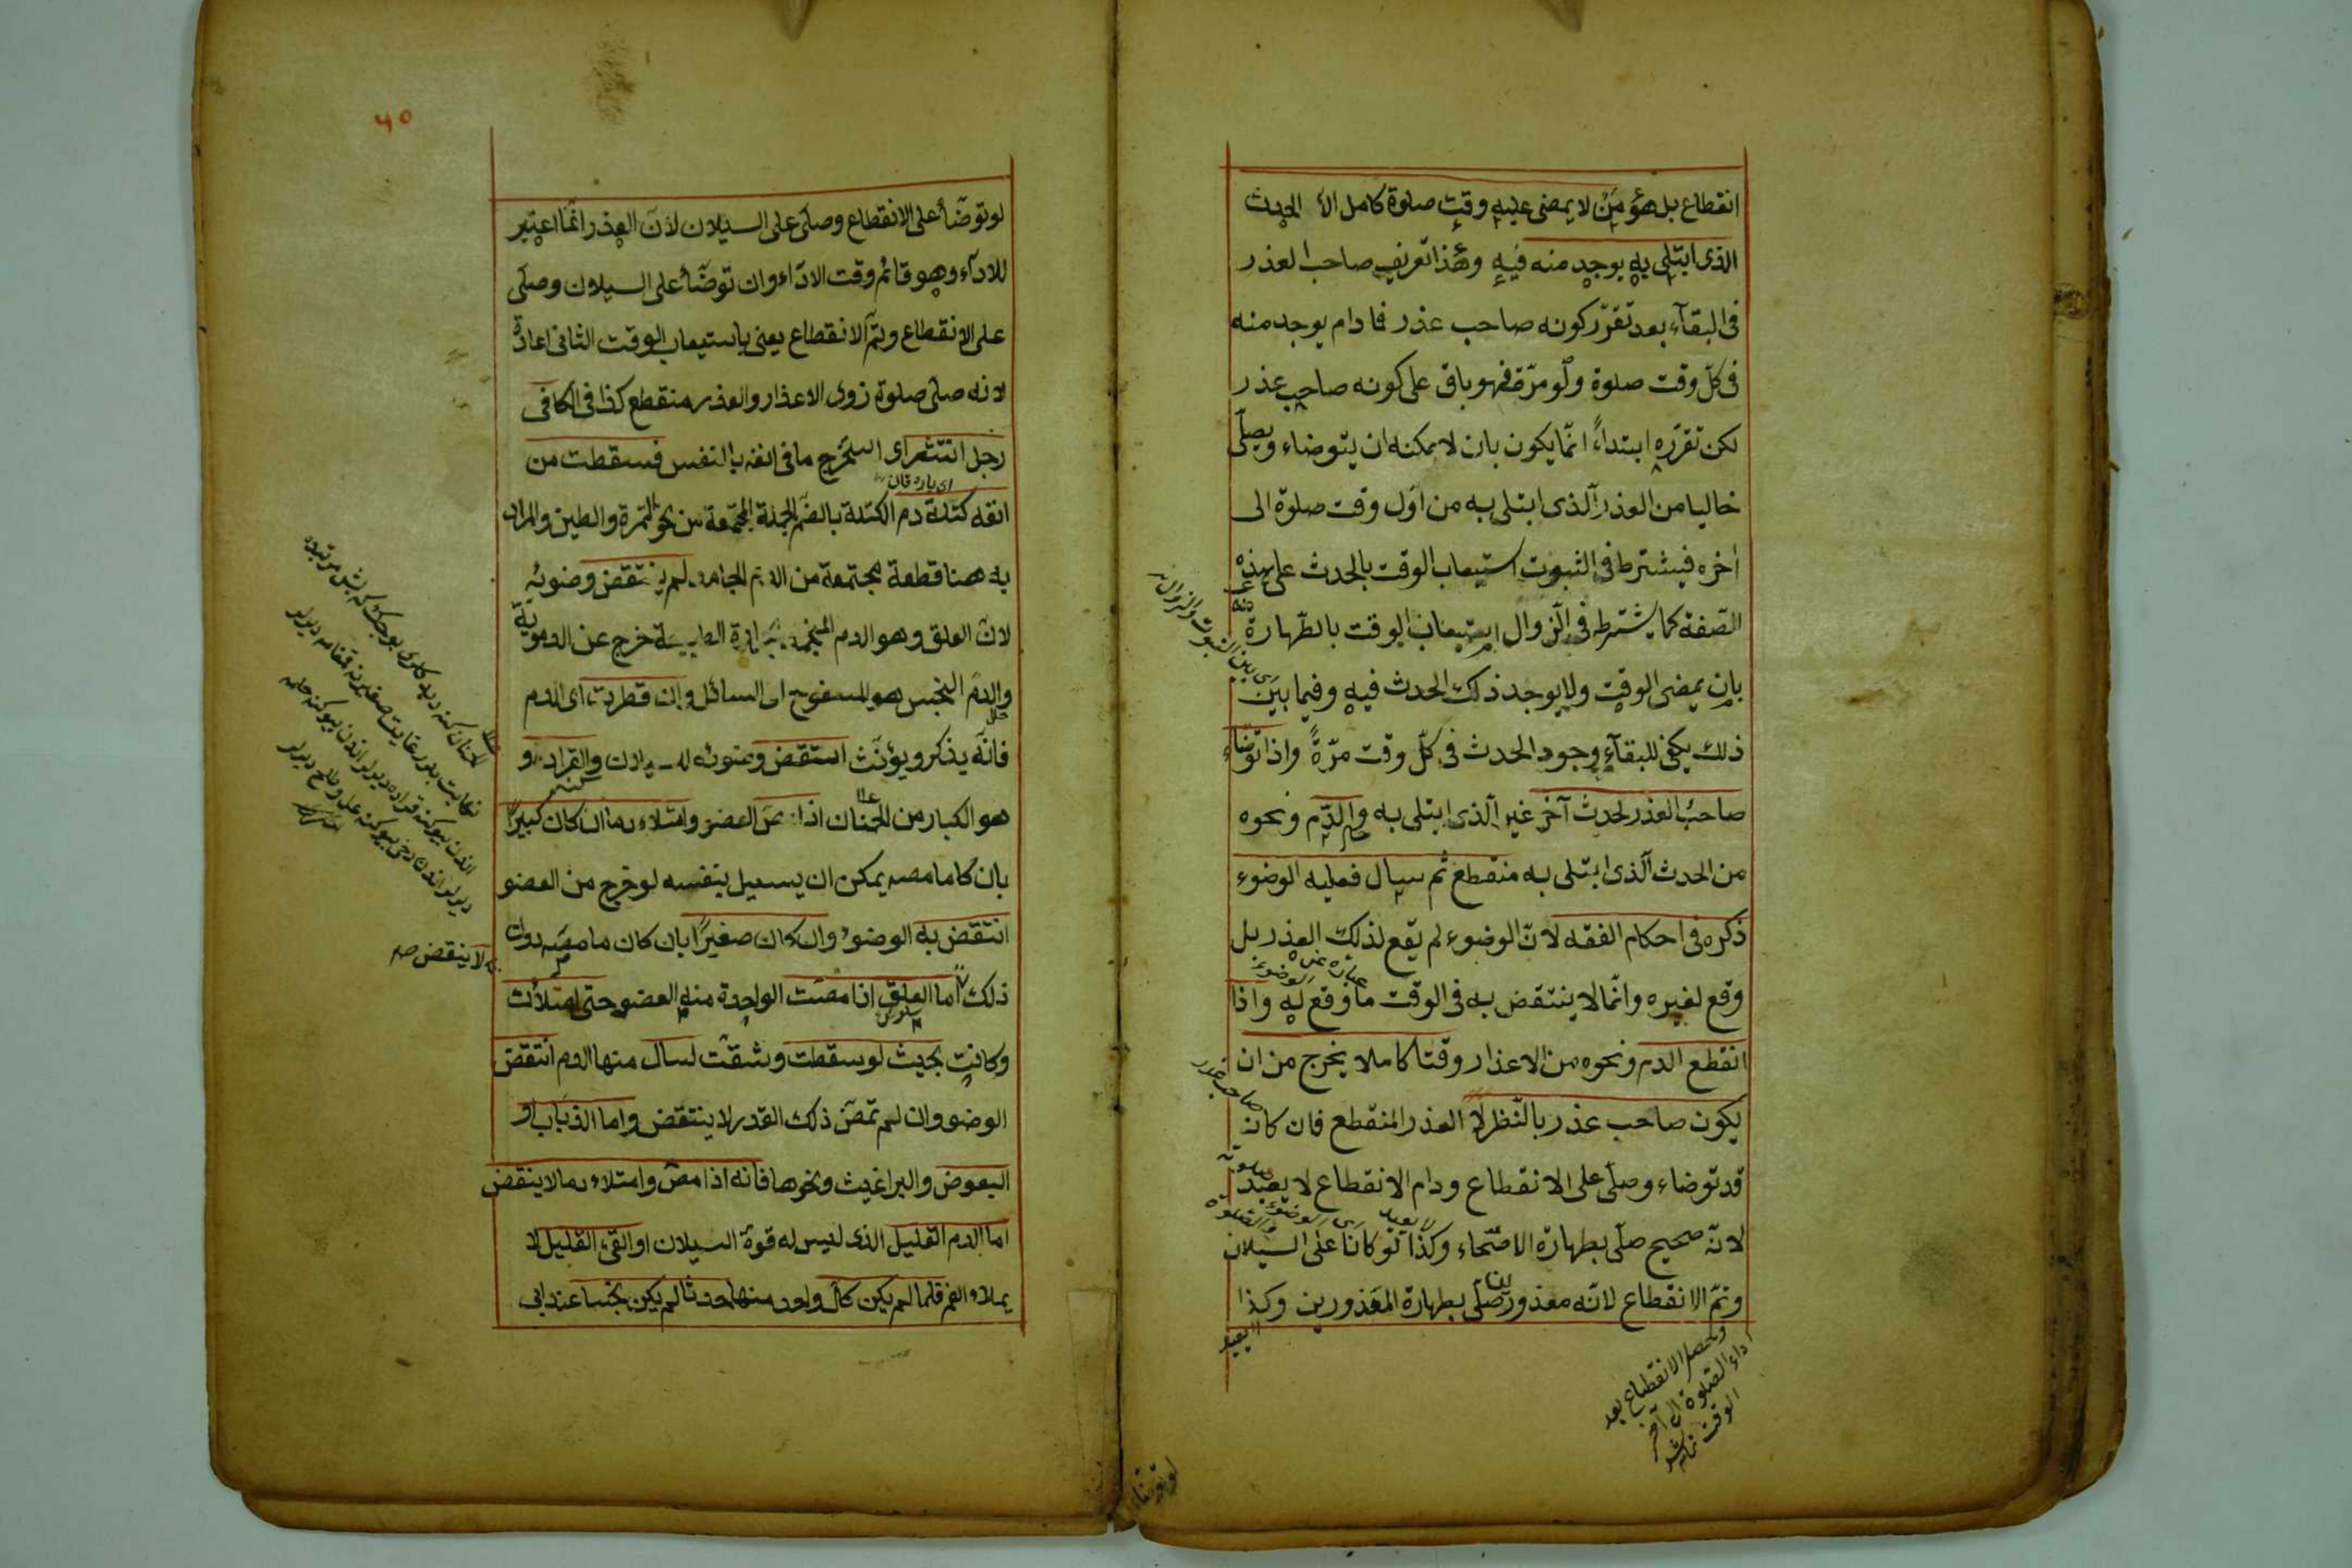 انقطاع بل هو من لا يمضى عليه وقت صلوة كامل الا الحدث
الذى ابتلى به يوجد منه فيه وهذا تعريف صاحب العذر
فى البقآء بعد تقرّر كونه صاحب عذر فما دام يوجد منه
فى كلّ وقت صلوة ولو مرّة فهو باق على كونه صاحب عذر
لكن تقرّره ابتداءً انّما يكون بان لا يمكنه ان يتوضاء ويصلّى
خاليا من العذر الّذى ابتلى به من اوّل وقت صلوة الى
اخره فيشترط فى الثبوت استيعاب الوقت بالحدث على هذه
الصّفة كما يشترط فى الزوال استيعاب الوقت بالطّهارة
بان يمضى الوقت ولا يوجد ذلك الحدث فيه وفيما بين
ذلك يكفى للبقآء وجود الحدث فى كلّ وقت مرّةً واذا توضّاء
صاحب العذر لحدث آخر غير الّذى ابتلى به والدّم ونحوه
من الحدث الّذى ابتلى به منقطع ثم سال فعليه الوضوء
ذكره فى احكام الفقه لانّ الوضوء لم يقع لذلك العذر بل
وقع لغيره وانّما لا ينتقض به فى الوقت ما وقع له واذا
انقطع الدم ونحوه من الاعذار وقتا كاملا يخرج من ان
يكون صاحب عذر بالنّظر لا العذر المنقطع فان كان
قد توضاء وصلّى على الانقطاع ودام الانقطاع لا يعيد
لانّه صحيح صلّى بطهارة الاصحّاء وكذا لو كانا على السيلان
وتمّ الانقطاع لانّه معذور صلّى بطهارة المعذورين وكذا
صاحب عذر
لا يعيد
وحصل الانقطاع بعد
اداء الصلوة الى آخر
الوقت
لو توضّاء
٦٥
لو توضّأ على الانقطاع وصلّى على السيلان لانّ العذر انّما اعتبر
للادآء وهو قائم وقت الادآء وان توضّأ على السيلان وصلّى
على الانقطاع وتمّ الانقطاع يعنى باستيعاب الوقت الثانى اعادة
لانه صلى صلوة ذوى الاعذار والعذر منقطع كذا فى الكافى
رجل انتثر اى استخرج ما فى انفه بالنفس فسقطت من
انفه كتلة دم الكتلة بالضّم الجملة المجتمعة من نحو التمرة والطين والمراد
به ههنا قطعة مجتمعة من الدم الجامد لم ينتقض وضوئه
لان العلق وهو الدم المنجمد خرج عن الدموية
والدم النجس هو المسفوح اى السائل وان قطرت اى الدم
فانّه يذكر ويؤنّث انتقض وضوئه للسيلان والقراد و
هو الكبار من الحمنان اذا مصّ العضو وامتلاء دما ان كان كبيرًا
بان كان ما مصه يمكن ان يسيل بنفسه لو خرج من العضو
انتقض به الوضوء وان كان صغيرًا بان كان ما مصّه دون
ذلك لا اما العلق اذا مصّت الواحدة منه العضو حتى امتلأت
وكانت بحيث لو سقطت وشقّت لسال منها الدم انتقض
الوضو وان لم تمصّ ذلك القدر لا ينتقض واما الذباب او
البعوض والبراغيث ونحوها فانه اذا مصّ وامتلاء دما لا ينقض
اما الدم القليل الذى ليس له قوة السيلان او القىء القليل لا
يملاء الفم فلما لم يكن كل واحد منها حدثا لم يكن نجسا عند ابى
لا ينقض صح